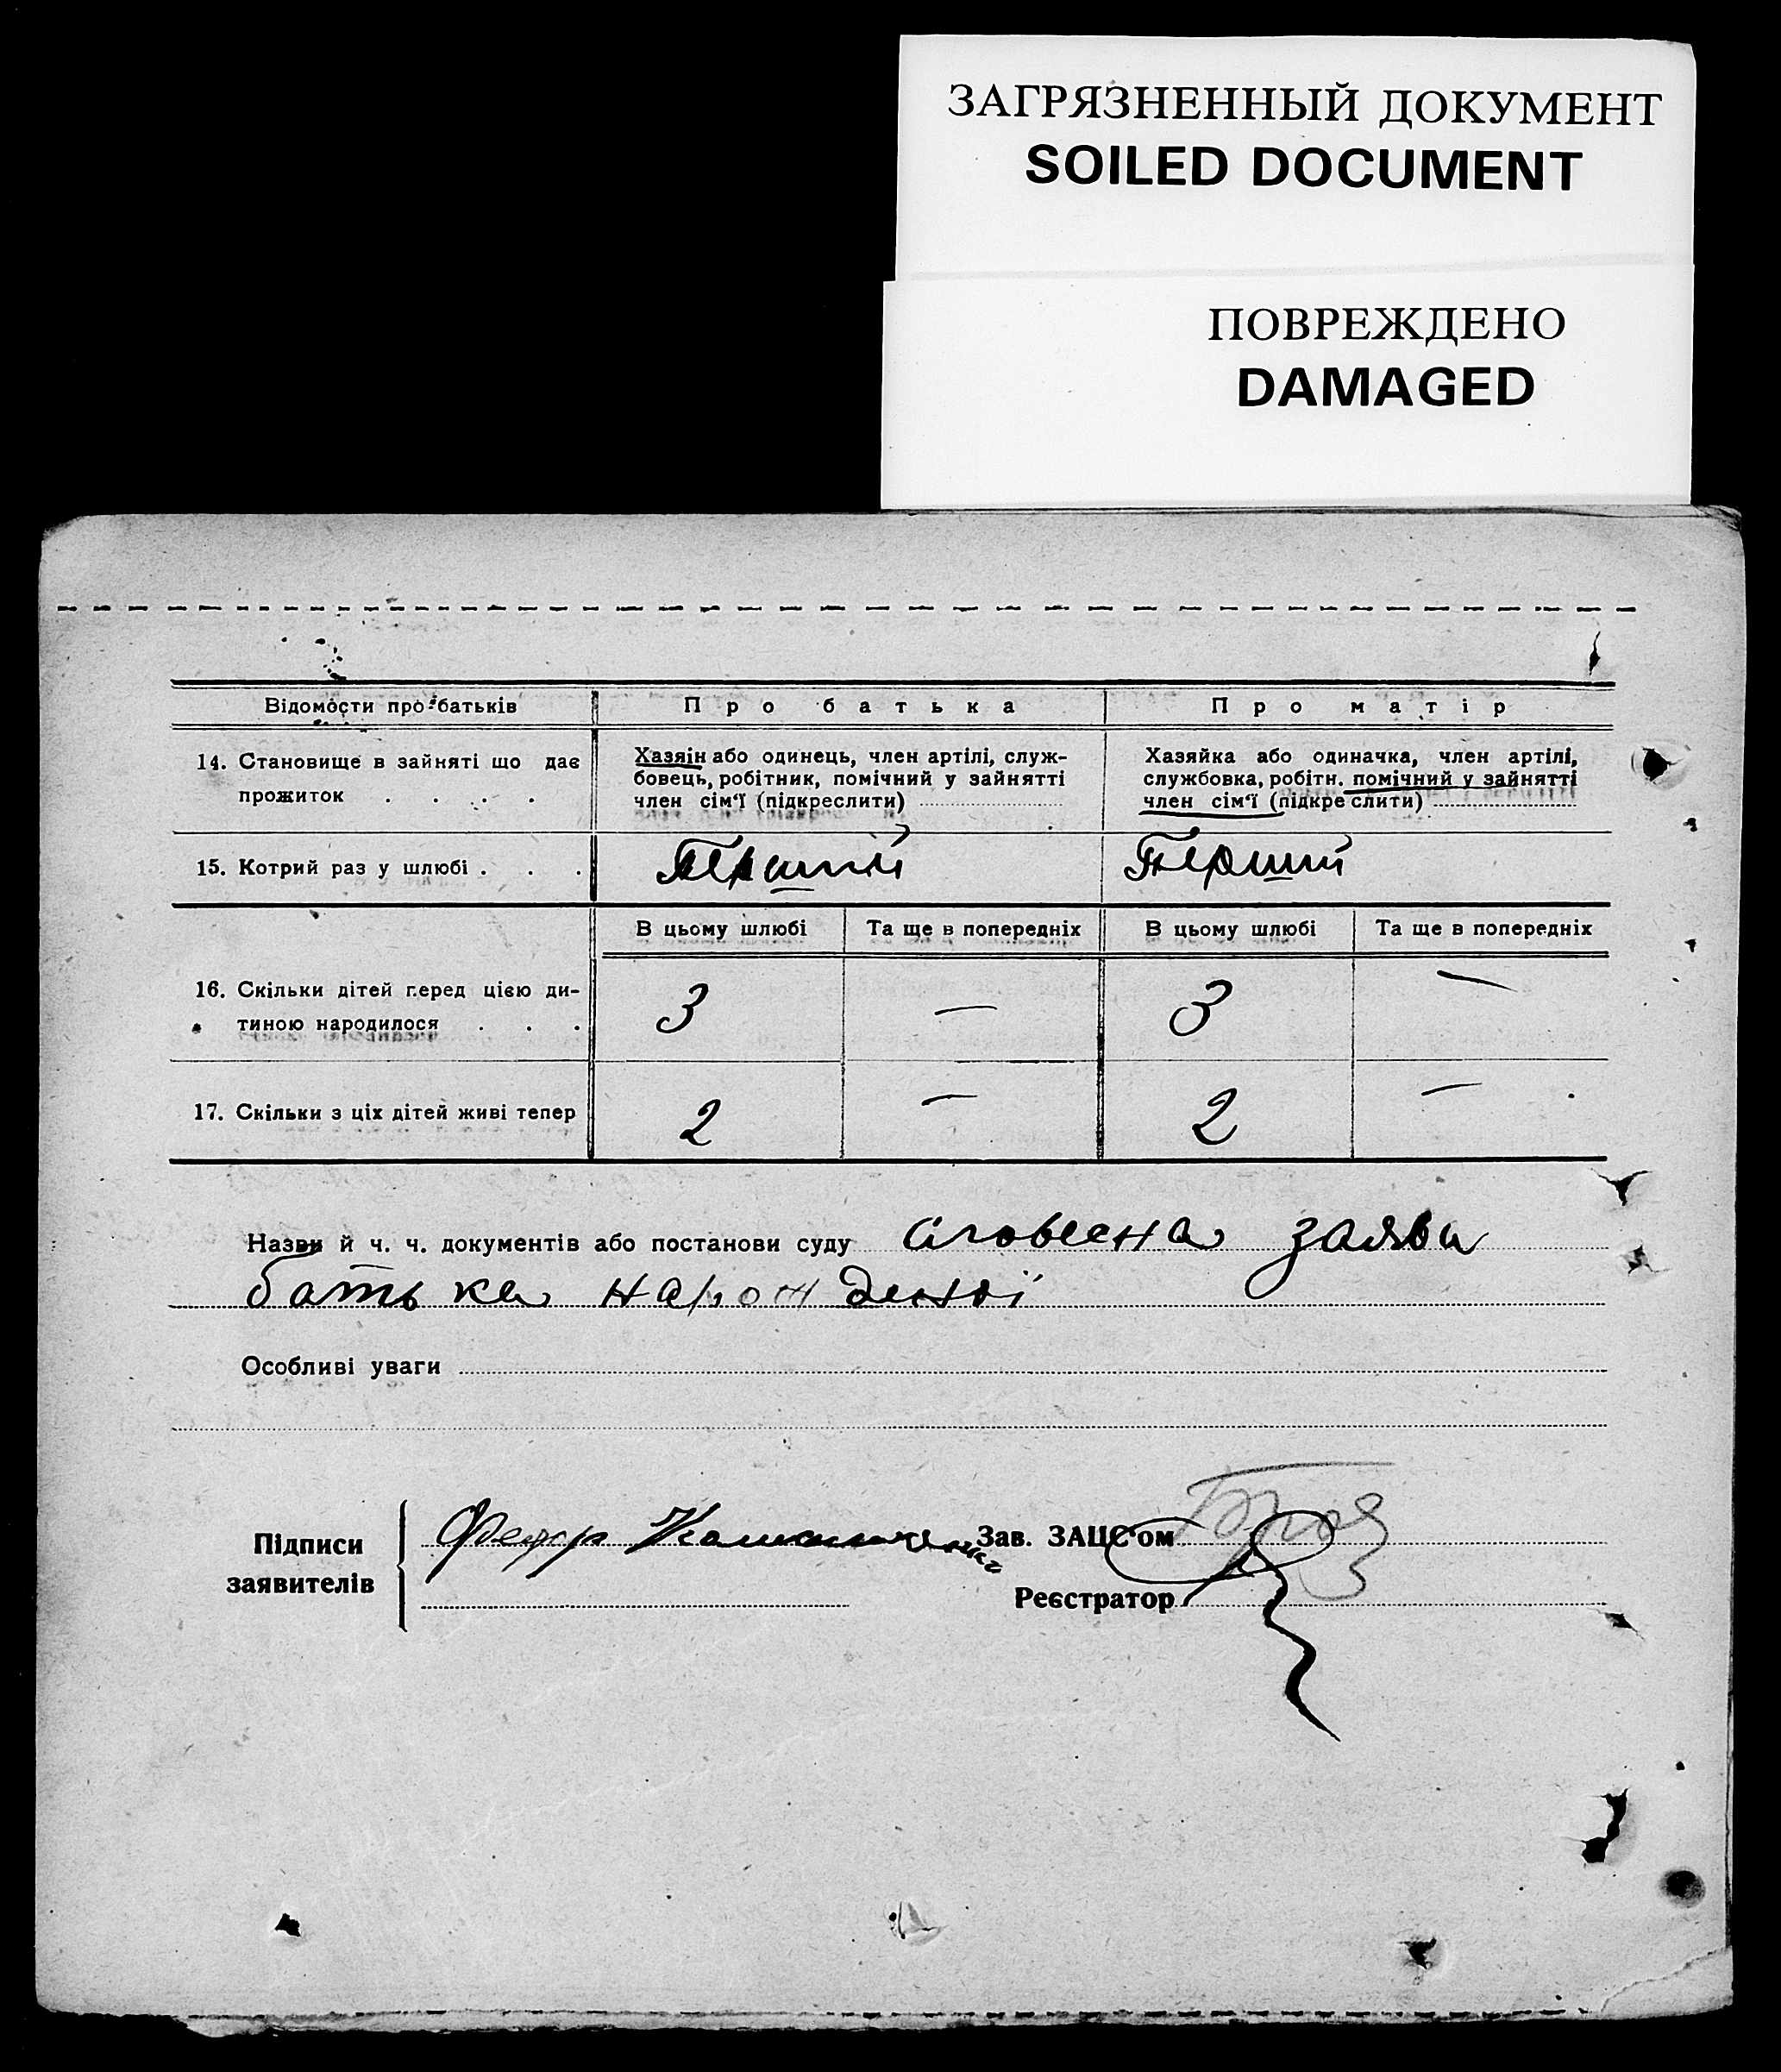 ЗАГРЯЗНЕННЫЙ ДОКУМЕНТ
SOILED DOCUMENT
ПОВРЕЖДЕНО
DAMAGED
Відомости про батьків
Про батька
Про матір
14. Становище в зайняті що дає
прожиток . . . .
Хазяін або одинець, член артілі, служ-
бовець, робітник, помічний у зайнятті
член сім'ї (підкреслити)
Хазяйка або одиначка, член артілі,
службовка, робітн. помічний у зайнятті
член сім'ї (підкреслити)
15. Котрий раз у шлюбі . . .
Перший
Перший
В цьому шлюбі
Та ще в попередніх
В цьому шлюбі
Та ще в попередніх
16. Скільки дітей перед цією ди-
тиною народилося . . .
3
—
3
—
17. Скільки з ціх дітей живі тепер
2
—
2
—
Назви й ч. ч. документів або постанови суду словесна заява
батька народженої
Особливі уваги
Підписи
заявителів
Федор
Зав. ЗАЦС'ом
Реєстратор